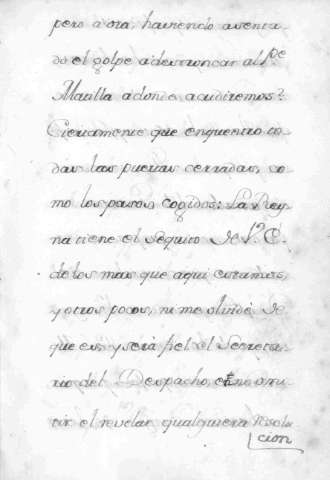 pero aora, haviendo asenta-
do el golpe a destroncar al P.e
Matilla adonde acudiremos?
Ciertamente que enquentro to-
das las puertas cerradas, co-
mo los pasos cogidos: La Rey-
na tiene el sequito de V. E.
de los mas que aqui estamos,
y otros pocos, ni me olvidè de
que es, y serà fiel el Secreta-
rio del Despacho, en
tir el revelar qualquiera resolu-
cion